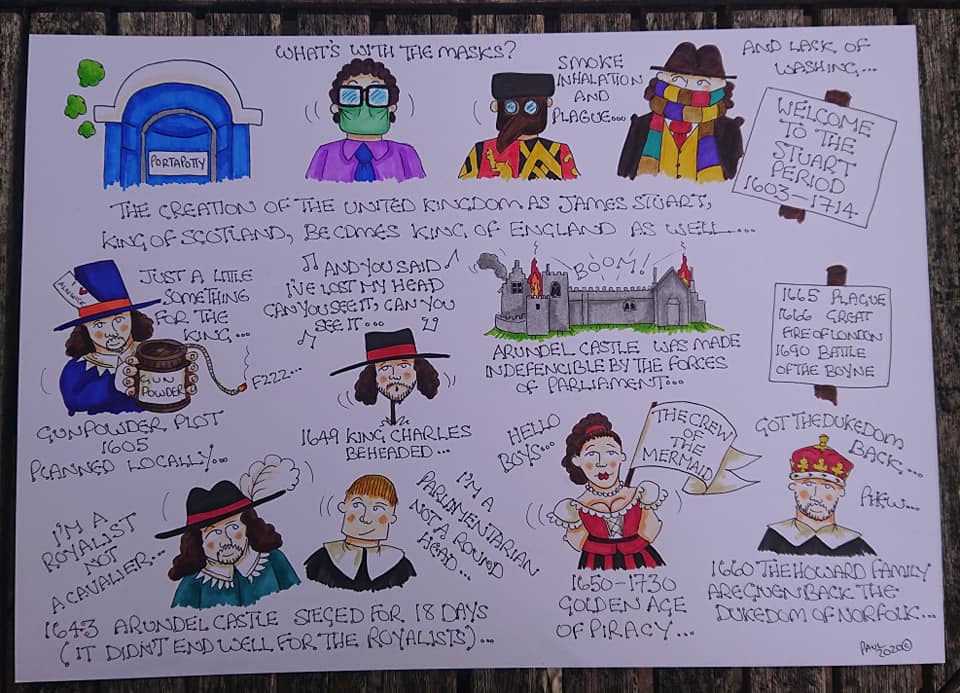 WHAT'S WITH THE MASKS?
SMOKE
INHALATION
AND
PLAGUE...
AND LACK OF
WASHING...
PORTAPOTTY
WELCOME
TO THE
STUART
PERIOD
1603-1714
THE CREATION OF THE UNITED KINGDOM AS JAMES STUART,
KING OF SCOTLAND, BECOMES KING OF ENGLAND AS WELL....
JUST A LITTLE
SOMETHING
FOR THE
KING...
GUN
POWDER
FZZZ...
GUNPOWDER PLOT
1605
PLANNED LOCALLY...
AND YOU SAID
I'VE LOST MY HEAD
CAN YOU SEE IT, CAN YOU
SEE IT...
1649 KING CHARLES
BEHEADED...
BOOM!
ARUNDEL CASTLE WAS MADE
INDEFENCIBLE BY THE FORCES
OF PARLIAMENT...
1665 PLAGUE
1666 GREAT
FIRE OF LONDON
1690 BATTLE
OF THE BOYNE
I'M A
ROYALIST
NOT
A CAVALIER...
I'M A
PARLIMENTARIAN
NOT A ROUND
HEAD...
1643 ARUNDEL CASTLE SIEGED FOR 18 DAYS
(IT DIDN'T END WELL FOR THE ROYALISTS)...
HELLO
BOYS...
THE CREW
OF
THE
MERMAID
1650-1730
GOLDEN AGE
OF PIRACY...
GOT THE DUKEDOM
BACK...
PHEW...
1660 THE HOWARD FAMILY
ARE GIVEN BACK THE
DUKEDOM OF NORFOLK...
PAUL
2020©